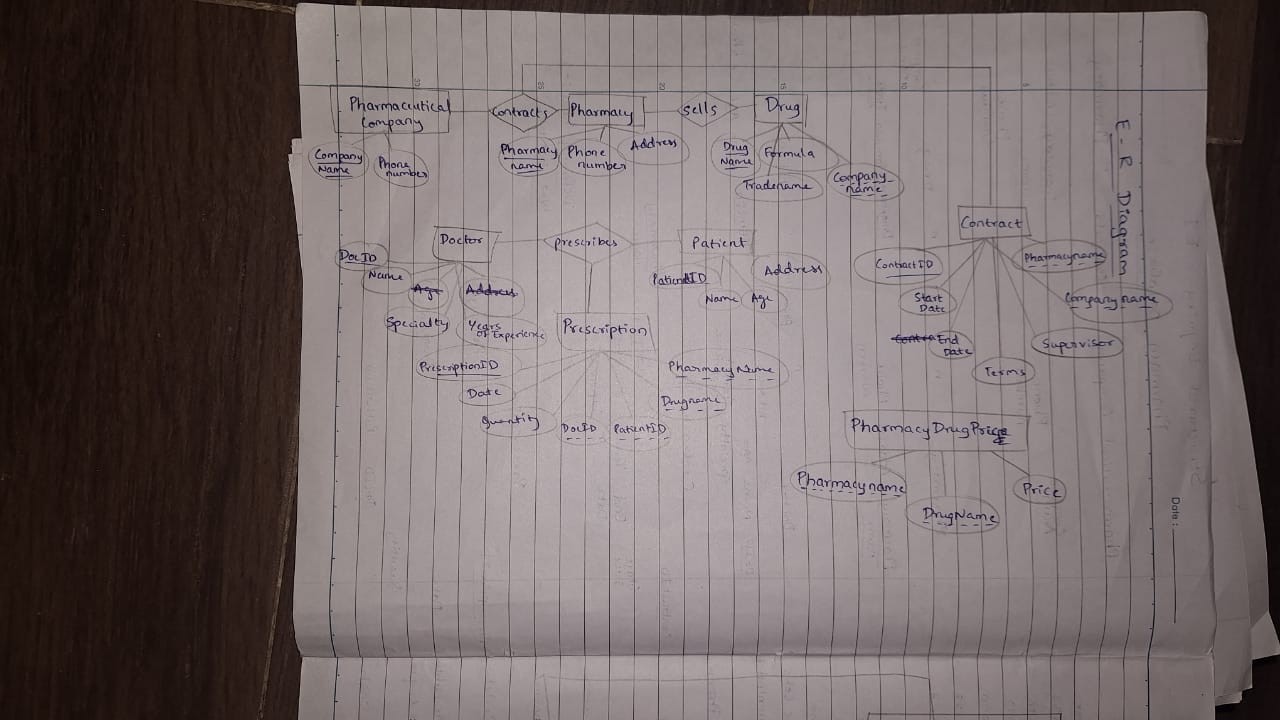 E-R Diagram
Date:
Pharmaceutical
Company
Contracts
Pharmacy
sells
Drug
Company
Name
Phone
number
Pharmacy
name
Phone
number
Address
Drug
Name
Formula
Tradename
Company
name
Doctor
prescribes
Patient
Contract
DocID
Name
Age
Address
Specialty
Years
of Experience
PatientID
Name
Age
Address
ContractID
Start
Date
End
Date
Terms
Supervisor
Company name
Pharmacyname
Prescription
PrescriptionID
Date
Quantity
DocID
PatientID
Drugname
PharmacyName
PharmacyDrugPrice
Pharmacyname
DrugName
Price